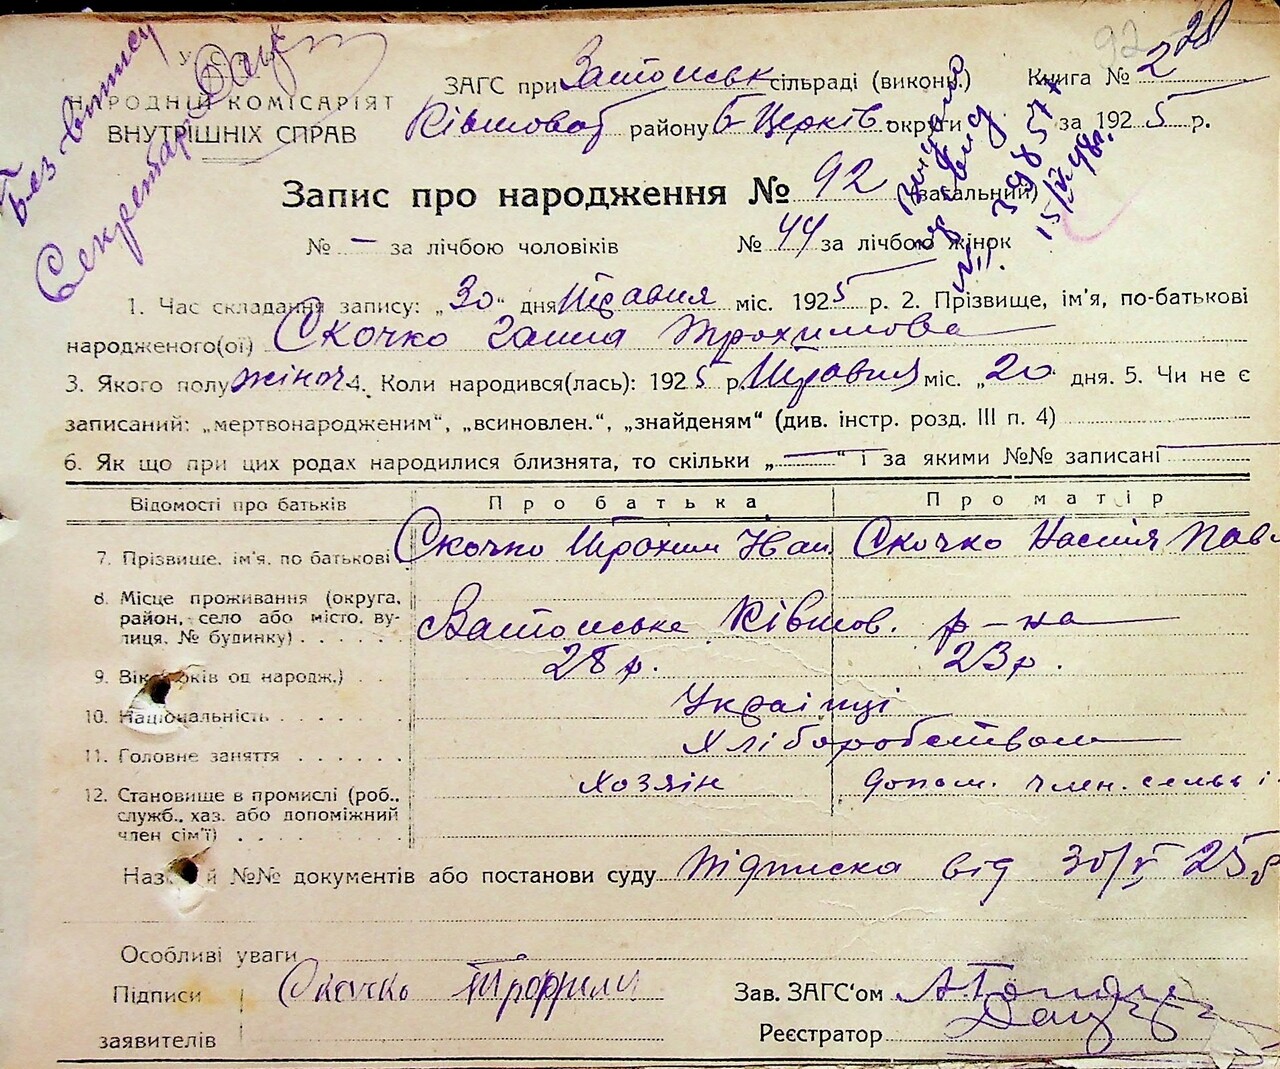 У.С.Р.Р.
НАРОДНІЙ КОМІСАРІЯТ
ВНУТРІШНІХ СПРАВ
Без
Секретар
92
ЗАГС при сільраді (викони.) Книга № 2
району Б Церків. округи за 1925 р.
39857
15/
Запис про народження № 92 (загальний)
№ — за лічбою чоловіків № 44 за лічбою жінок
1. Час складання запису: „30“ дня Травня міс. 1925 р. 2. Прізвище, ім'я, по-батькові
народженого(ої) Скочко Ганна Трохимова
3. Якого полу жіноч. 4. Коли народився(лась): 1925 р. Травня міс. „20 дня. 5. Чи не є
записаний: „мертвонародженим“, „всиновлен.“, „знайденям“ (див. інстр. розд. III п. 4)
6. Як що при цих родах народилися близнята, то скільки „—“ і за якими №№ записані —
Відомості про батьків Про батька Про матір
7. Прізвище, ім'я, по батькові Скочко Трохим Скочко Настія Пав
8. Місце проживання (округа,
район, село або місто, ву-
лиця, № будинку) Ківшов. р-на
9. Вік (років од народж.) 28 р. 23 р.
10. Національність Українці
11. Головне заняття Хліборобством
12. Становище в промислі (роб., Хозяін допом. член. сельі
служб., хаз. або допоміжний
член сім'ї)
Назва й №№ документів або постанови суду Підписка від 30/V 25
Особливі уваги
Підписи Скочко Зав. ЗАГС'ом
заявителів Реєстратор